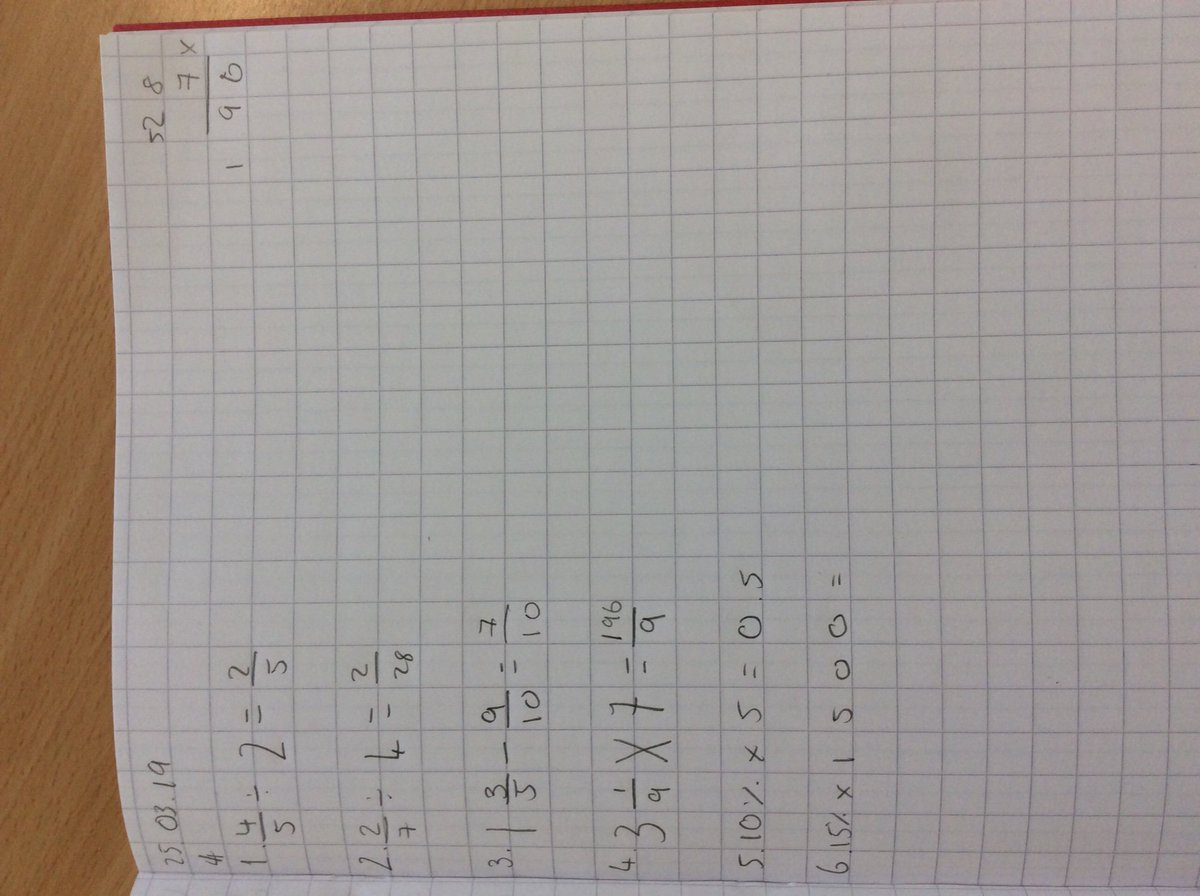 25.03.19
1. 4/5 ÷ 2 = 2/5
2. 2/7 ÷ 4 = 2/28
3. 1 3/5 - 9/10 = 7/10
4. 3 1/9 × 7 = 196/9
5. 10% × 5 = 0.5
6. 15% × 1500 =
52 8
7 ×
1 9 6